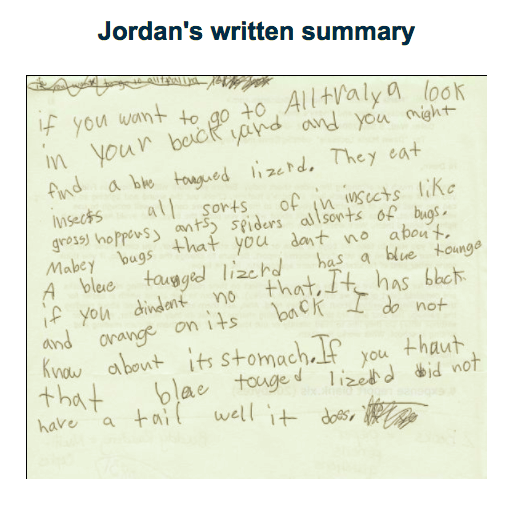 Jordan's written summary
if you want to go to Alltralya look
in your back yand and you might
find a blue tougued lizerd. They eat
insects all sorts of in insects like
grosss hoppors, ants, spiders allsorts of bugs.
Mabey bugs that you dont no about.
A bleue tougged lizerd has a blue tounge
if you dindent no that, It has black
and orange on its back I do not
Know about its stomach. If you thaut
that bleae touged lizerd did not
have a tail well it does.